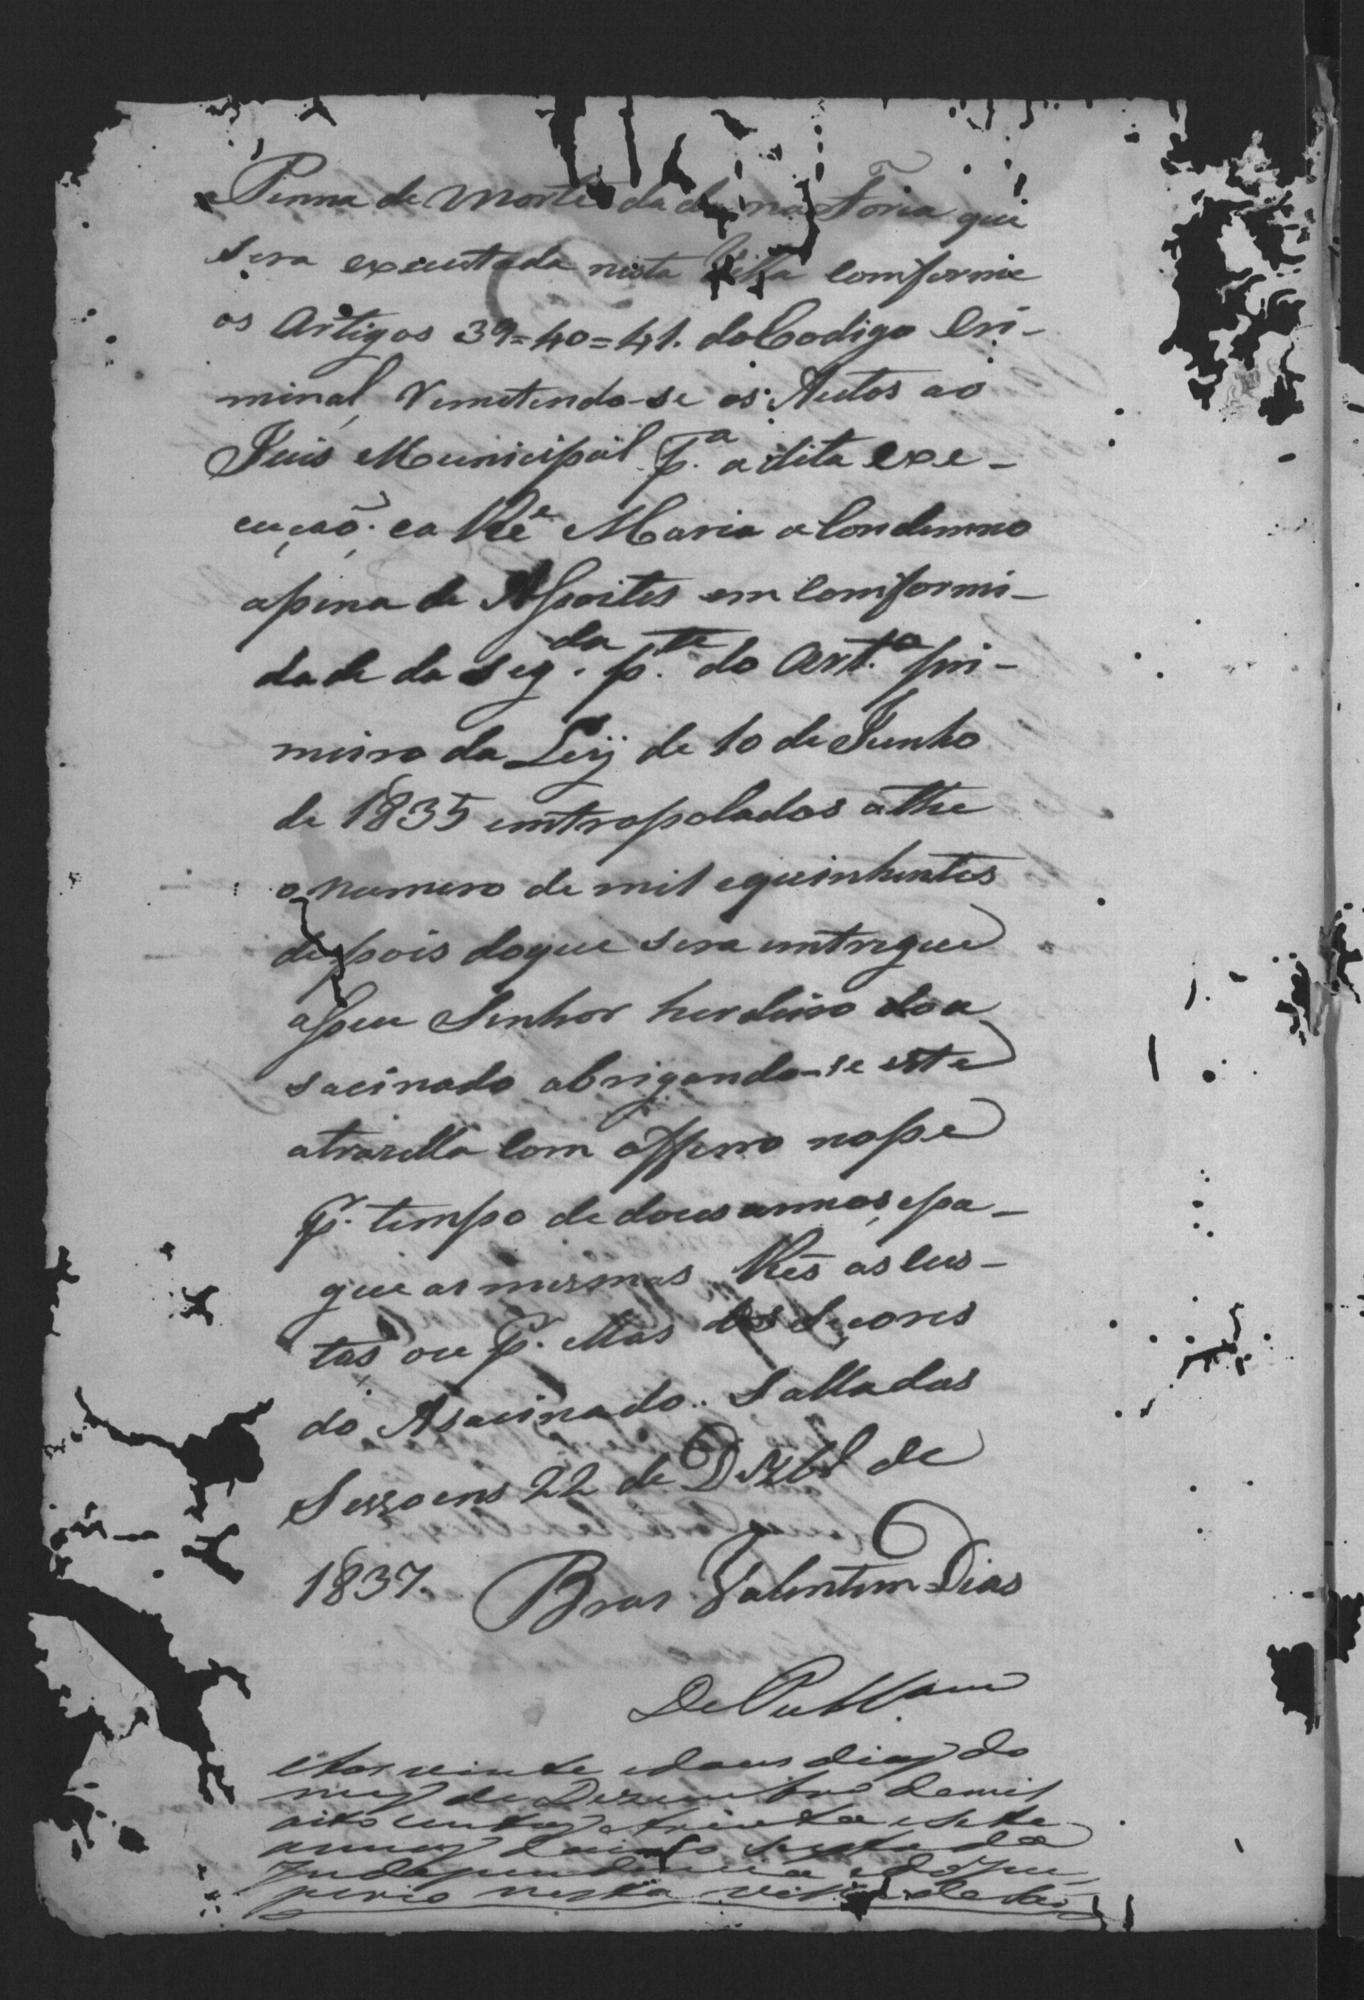 Penna de Morte dada na Forca que
sera executada nesta Villa comforme
os Artigos 39=40=41. do Codigo Cri-
minal remetendo-se os Autos ao
Juis Municipal p.ª a dita exe-
cução. ea Ré Maria a Condemno
apena de Assoites em comformi-
dade da seg.da p.te do Art.º pri-
meiro da Leij de 10 de Junho
de 1835 entropolados athe
o numero de mil equinhentos
depois doque sera entregue
asseu Senhor herdeiro doa
sacinado obrigando-se este
atrazella com offerro nope
p.r tempo de dous annos, epa-
gue as mesmas Rés as cus-
tas ou p.r ellas os Sucores
do Asacinado. Salla das
Sessoens 22 de Dezbr.º de
1837. Bras Valentim Dias
De Publ.am
Aos vinte edous dias do
mez de Dezembro demil
oito centos etrinta esete
annos decimo sexto da
Independencia e do Im-
perio nesta Villa de